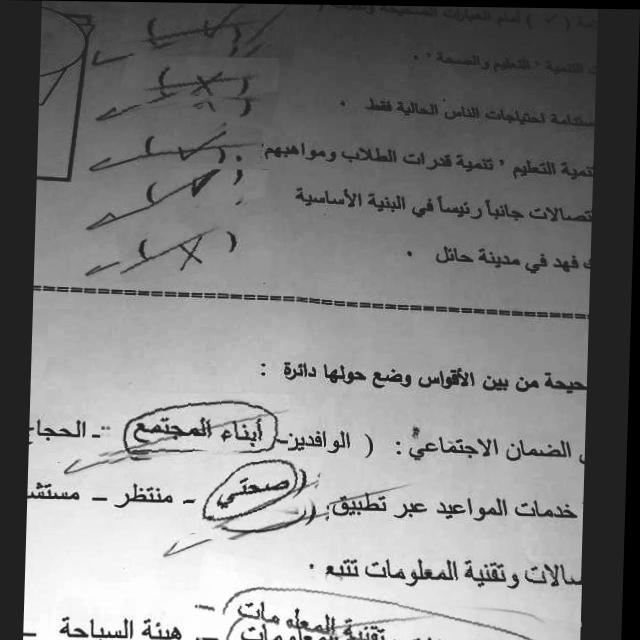 ( ✓ ) أمام العبارات الصحيحة
التنمية " التعليم والصحة " . ( ✓ )
احتياجات الناس الحالية فقط . ( X )
تنمية التعليم " تنمية قدرات الطلاب ومواهبهم . ( ✓ )
تصالات جانباً رئيساً في البنية الأساسية ( ✓ )
ك فهد في مدينة حائل . ( X )
حيحة من بين الأقواس وضع حولها دائرة :
الضمان الاجتماعي : ( الوافدين - أبناء المجتمع - الحجاج
خدمات المواعيد عبر تطبيق : ( صحتي - منتظر - مستشـ
صالات وتقنية المعلومات تتبع .
تقنية المعلومات - هيئة السياحة -